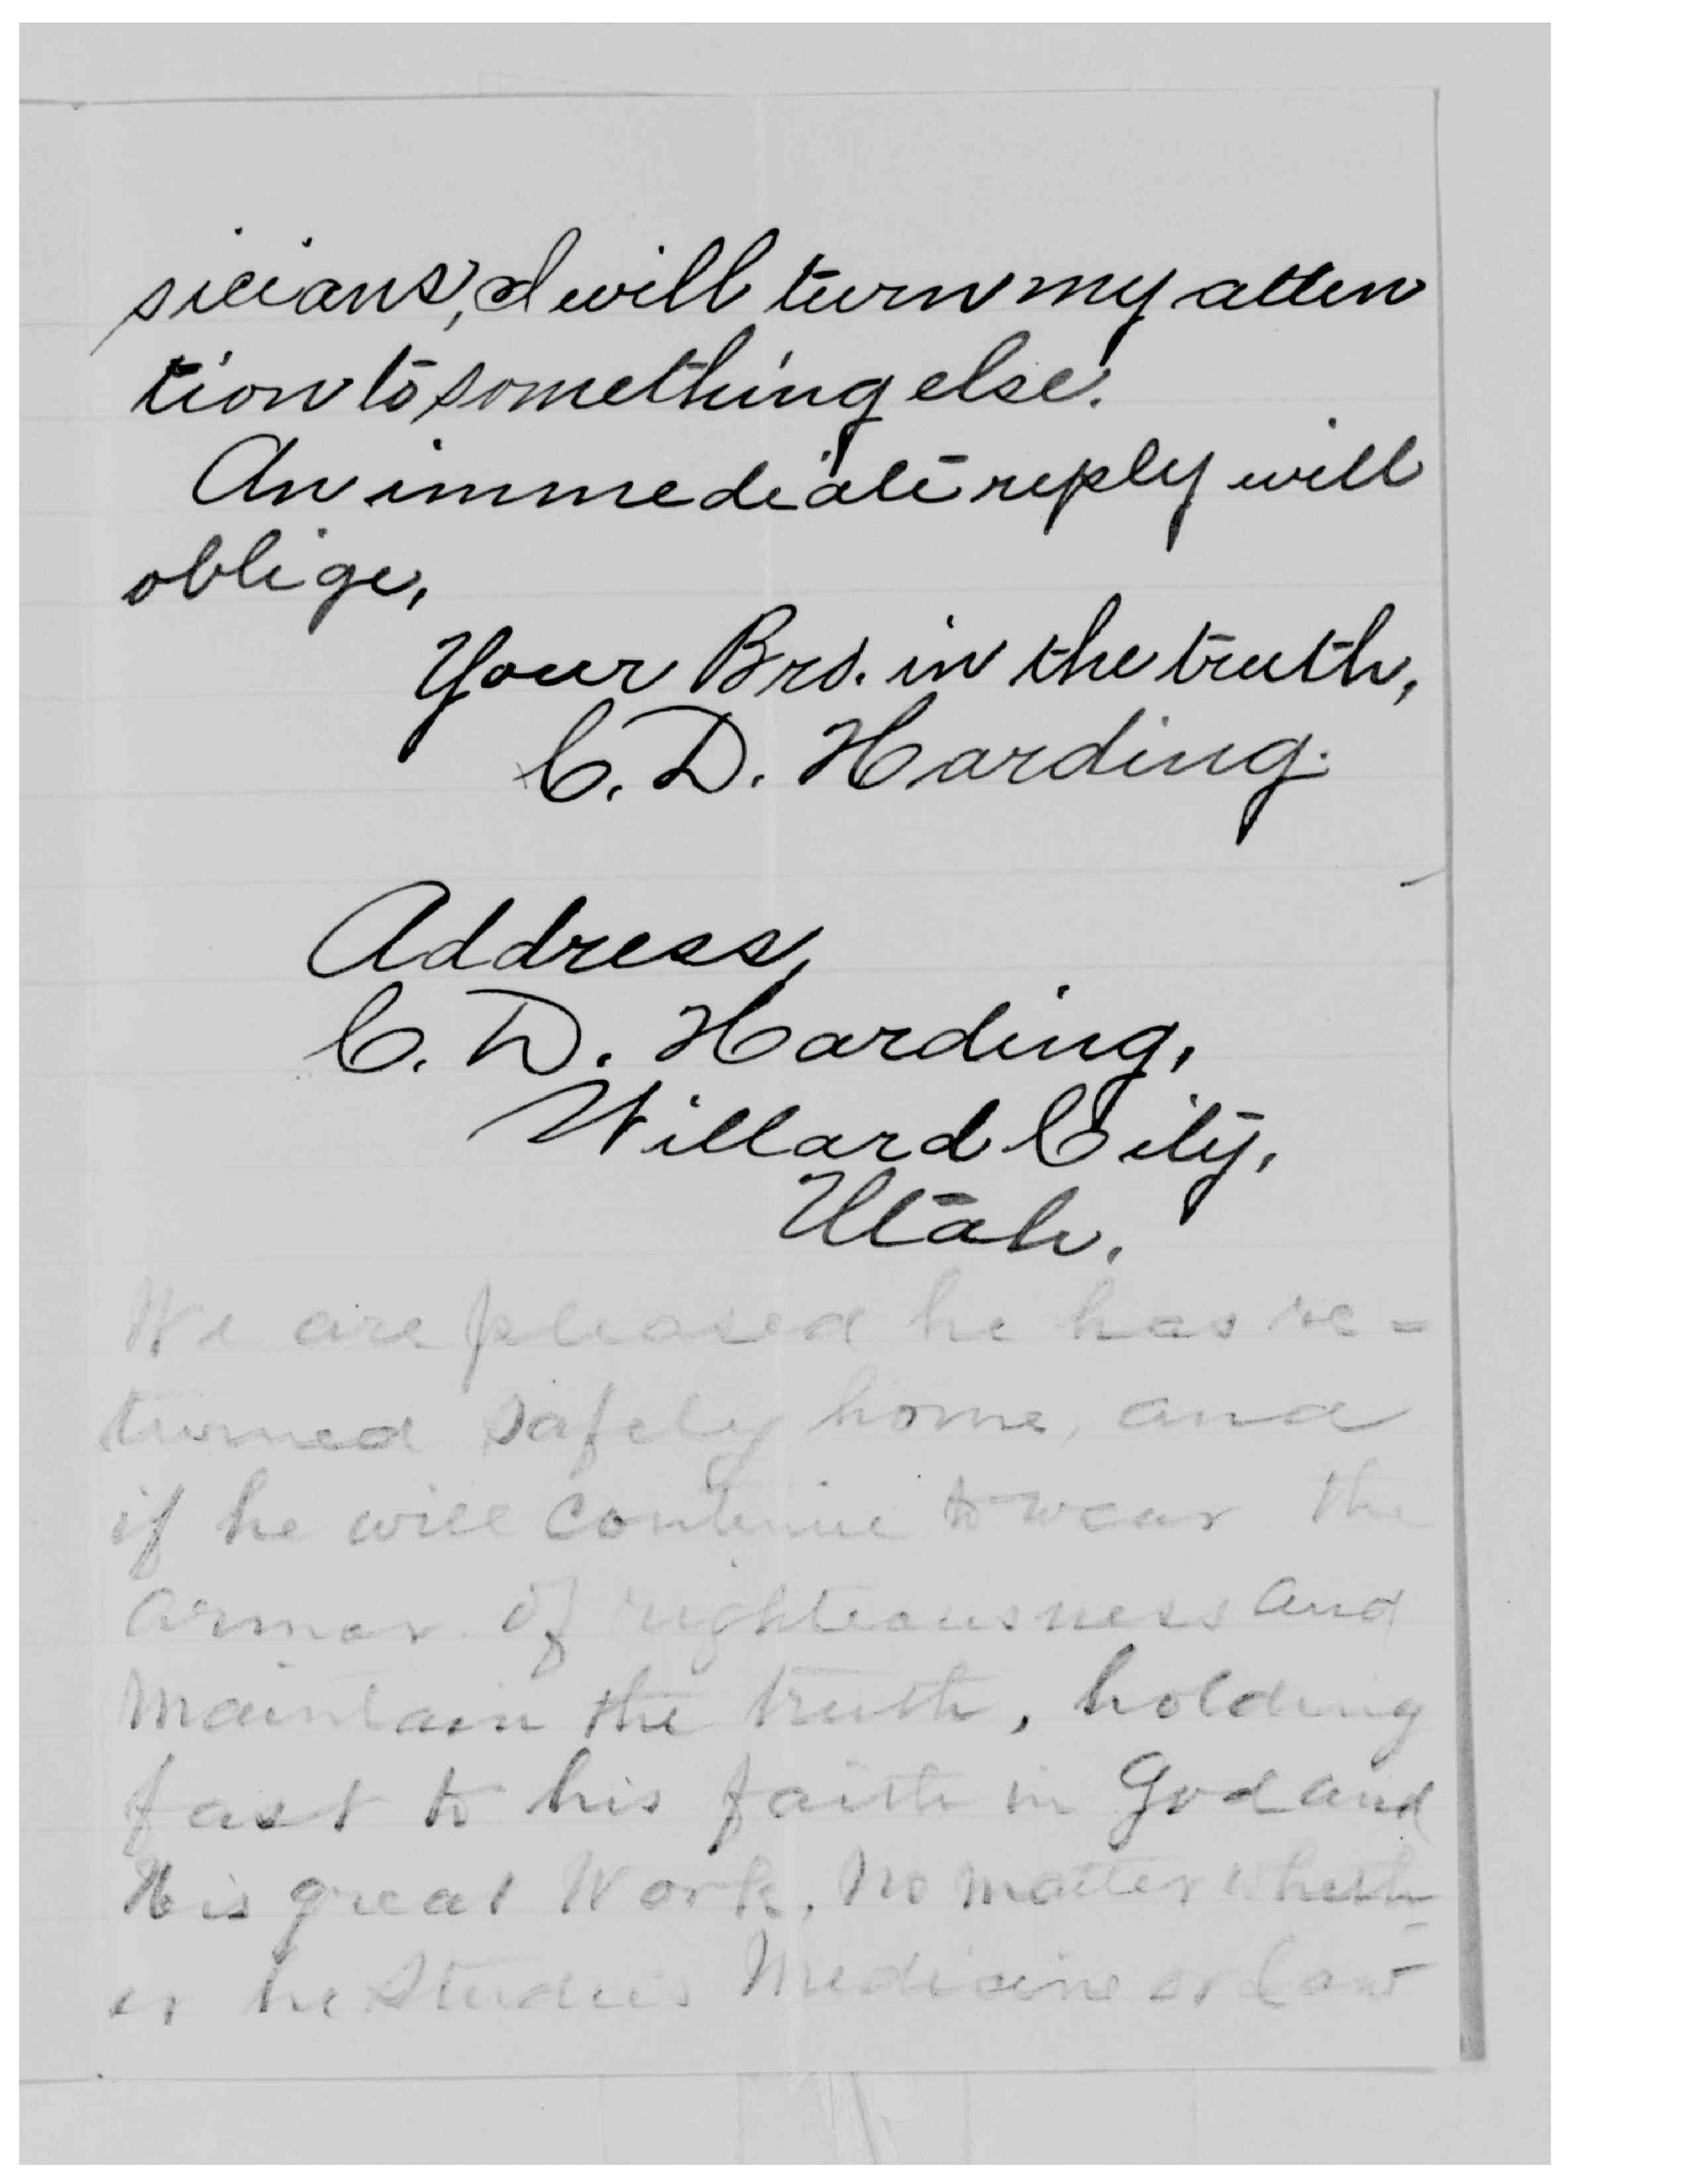 sicians, I will turn my atten
tion to something else.
An immediate reply will
oblige,
Your Bro. in the truth,
C. D. Harding.
Address,
C. D. Harding,
Willard City,
Utah.
We are pleased he has re-
turned safely home, and
if he will continue to wear the
armor of righteousness and
maintain the truth, holding
fast to his faith in God and
His great Work, no matter wheth-
er he studies Medicine or law